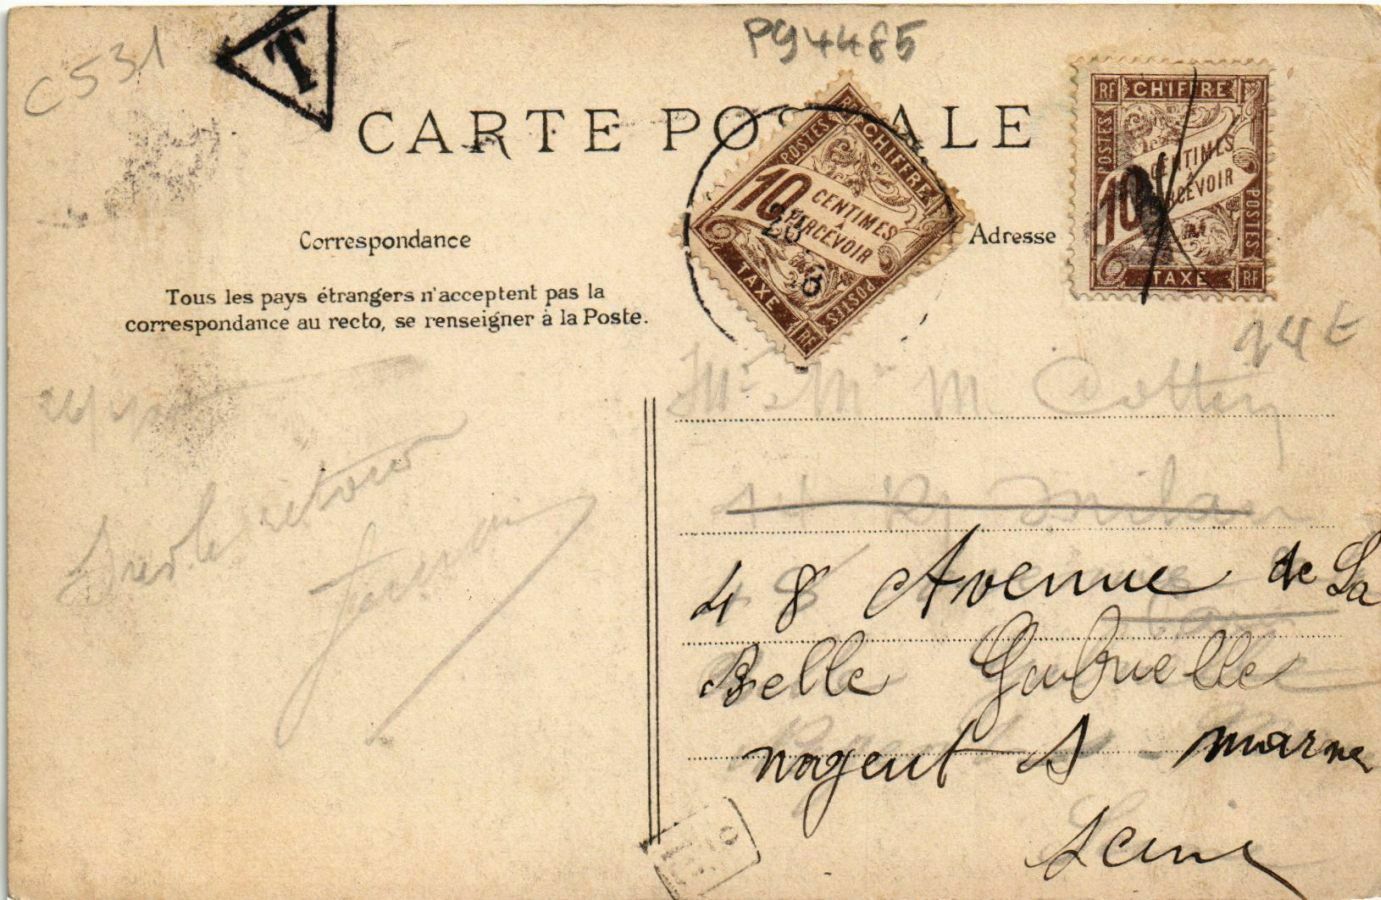 C531
T
P94485
CARTE POSTALE
RF CHIFFRE
POSTES
10 CENTIMES
À
PERCEVOIR
TAXE
POSTES
RF
RF CHIFFRE
POSTES
10 CENTIMES
À
PERCEVOIR
TAXE
POSTES
RF
Correspondance
Adresse
Tous les pays étrangers n'acceptent pas la
correspondance au recto, se renseigner à la Poste.
14 €
retour
Mr Mr M Cottin
Milan
48 Avenue de La
Belle Gabrielle
nogent S marne
Seine